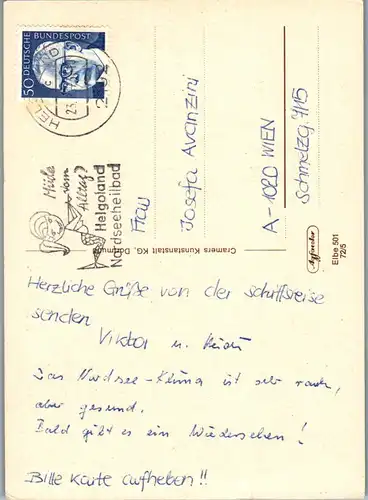 50 DEUTSCHE BUNDESPOST
HELGOLAND
Müde
vom
Alltag?
Helgoland
Nordseeheilbad
Frau
Josefa Avanzini
A-1020 WIEN
Schmelzg. 7/15
Cramers Kunstanstalt KG, Dortmund
Elbe 501
72/5
Herzliche Grüße von der Schiffsreise
senden
Viktor u.
Das Nordsee-Klima ist sehr rauh,
aber gesund.
Bald gibt es ein Wiedersehen!
Bitte Karte aufheben!!